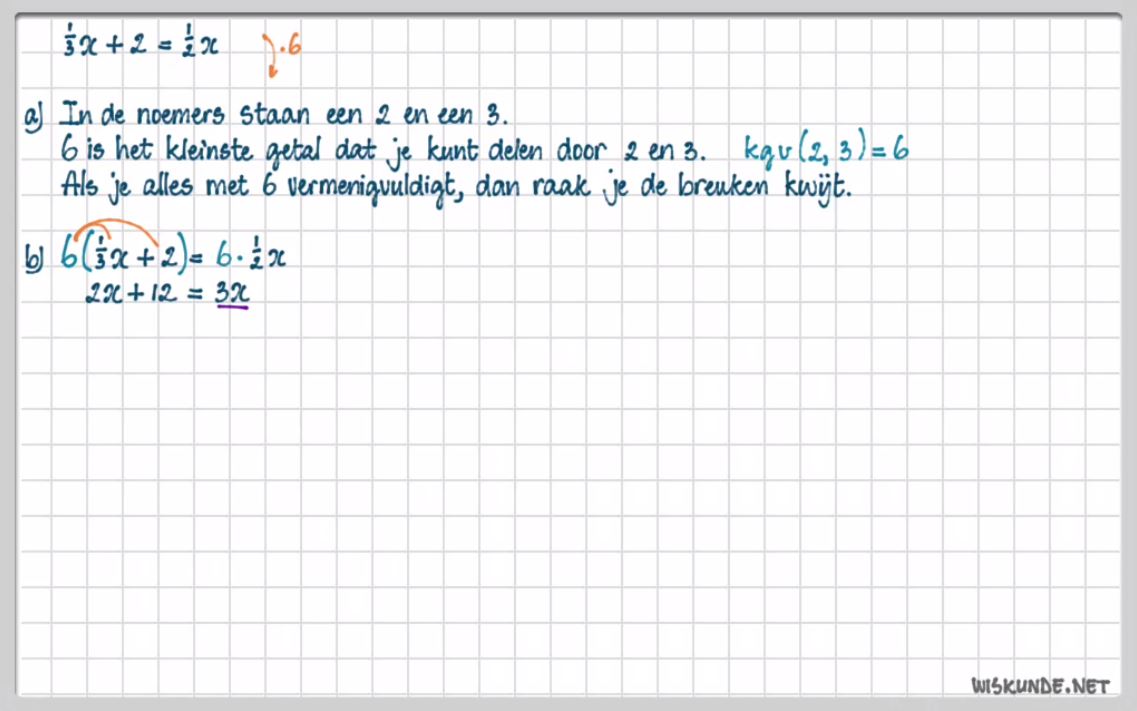 ⅓x + 2 = ½x   ·6
a) In de noemers staan een 2 en een 3.
6 is het kleinste getal dat je kunt delen door 2 en 3.   kgv(2, 3) = 6
Als je alles met 6 vermenigvuldigt, dan raak je de breuken kwijt.
b) 6(⅓x + 2) = 6 · ½x
2x + 12 = 3x
WISKUNDE.NET